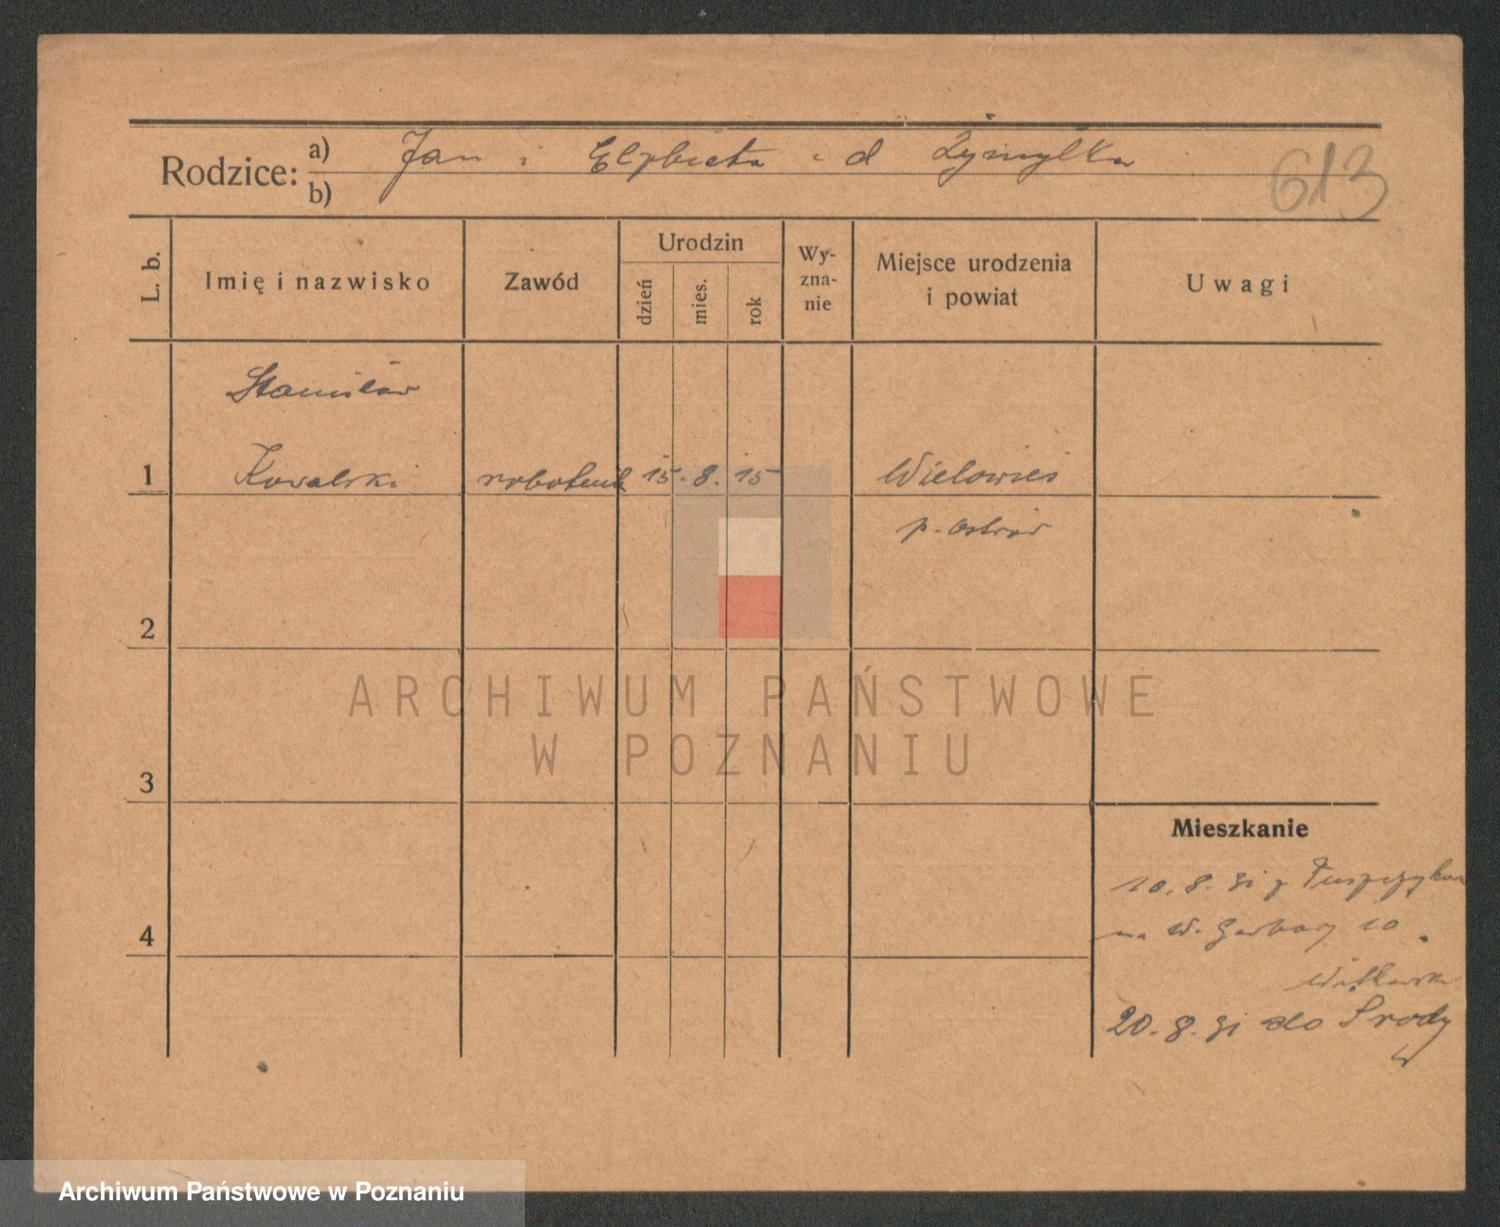 Rodzice:
a) Jan i Elżbieta z d Żymyłka
b)
613
L. b.
Imię i nazwisko
Zawód
Urodzin
dzień
mies.
rok
Wy-
zna-
nie
Miejsce urodzenia
i powiat
Uwagi
Stanisław
1 Kowalski robotnik 15. 8. 15 Wielowieś
p. Ostrów
2
3
4
Mieszkanie
10. 8. 31 z
na W. Garbary 10
Witkowska
20. 8. 31 do Środy
ARCHIWUM PAŃSTWOWE
W POZNANIU
Archiwum Państwowe w Poznaniu